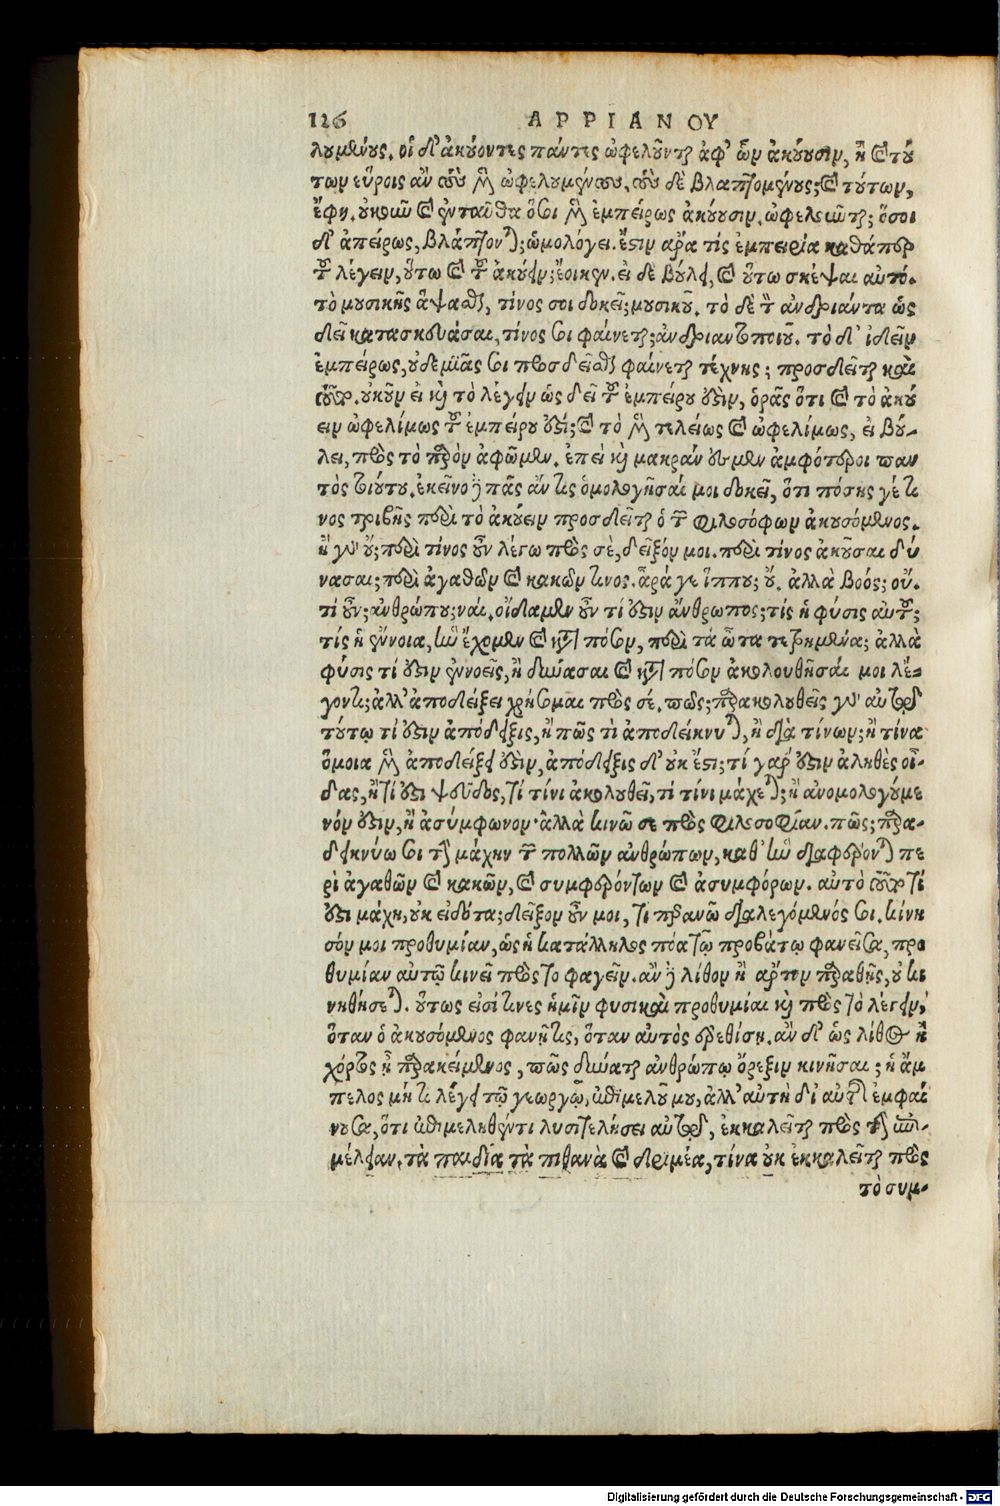 126 ΑΡΡΙΑΝΟΥ
λουμένους. οἱ δ' ἀκούοντες πάντες ὠφελοῦνται ἀφ' ὧν ἀκούουσιν, ἢ καὶ τού
των εὕροις ἂν τοὺς μὲν ὠφελουμένους, τοὺς δὲ βλαπτομένους; καὶ τούτων,
ἔφη. οὐκοῦν καὶ ἐνταῦθα ὅσοι μὲν ἐμπείρως ἀκούουσιν, ὠφελοῦνται; ὅσοι
δ' ἀπείρως, βλάπτονται; ὡμολόγει. ἔστιν ἄρα τίς ἐμπειρία καθάπερ
τοῦ λέγειν, οὕτω καὶ τοῦ ἀκούειν; ἔοικεν. εἰ δὲ βούλει, καὶ οὕτω σκέψαι αὐτό.
τὸ μουσικῆς ἅψασθαι, τίνος σοι δοκεῖ; μουσικοῦ. τὸ δὲ τὸν ἀνδριάντα ὡς
δεῖ κατασκευάσαι, τίνος σοι φαίνεται; ἀνδριαντοποιοῦ. τὸ δ' ἰδεῖν
ἐμπείρως, οὐδεμϊᾶς σοι προσδεῖσθαι φαίνεται τέχνης; προσδεῖται καὶ
τοῦτο. οὐκοῦν εἰ καὶ τὸ λέγειν ὡς δεῖ τοῦ ἐμπείρου ἐστὶν, ὁρᾷς ὅτι καὶ τὸ ἀκού
ειν ὠφελίμως τοῦ ἐμπείρου ἐστί; καὶ τὸ μὲν τελείως καὶ ὠφελίμως, εἰ βού-
λει, πρὸς τὸ παρὸν ἀφῶμεν. ἐπεὶ καὶ μακράν ἐσμεν ἀμφότεροι παν
τὸς τοιούτου. ἐκεῖνο δὲ πᾶς ἄν τις ὁμολογῆσαί μοι δοκεῖ, ὅτι πόσης γέ τι
νος τριβῆς περὶ τὸ ἀκούειν προσδεῖται ὁ τῶν φιλοσόφων ἀκουσόμενος.
ἢ γὰρ οὔ; περὶ τίνος οὖν λέγω πρὸς σὲ, δεῖξόν μοι. περὶ τίνος ἀκοῦσαι δύ
νασαι; περὶ ἀγαθῶν καὶ κακῶν τινος. ἆρά γε ἵππου; οὔ. ἀλλὰ βοός; οὔ.
τί οὖν; ἀνθρώπου; ναί. οἴδαμεν οὖν τί ἐστιν ἄνθρωπος; τίς ἡ φύσις αὐτοῦ;
τίς ἡ ἔννοια, ἣν ἔχομεν καὶ κατὰ πόσον, περὶ τὰ ὦτα τετρημένα; ἀλλὰ
φύσις τί ἐστιν ἐννοεῖς, ἢ δύνασαι καὶ κατὰ πόσον ἀκολουθῆσαί μοι λέ-
γοντι; ἀλλ' ἀποδείξει χρήσομαι πρὸς σέ. πῶς; παρακολουθεῖς γὰρ αὐτῷ
τούτῳ τί ἐστιν ἀπόδειξις, ἢ πῶς τὶ ἀποδείκνυται, ἢ διὰ τίνων; ἢ τίνα
ὅμοια μὲν ἀποδείξει ἐστὶν, ἀπόδειξις δ' οὐκ ἔστι; τί γάρ ἐστιν ἀληθὲς οἶ-
δας, ἢ τί ἐστι ψεῦδος, τί τίνι ἀκολουθεῖ, τί τίνι μάχεται; ἢ ἀνομολογούμε
νόν ἐστιν, ἢ ἀσύμφωνον· ἀλλὰ κινῶ σε πρὸς φιλοσοφίαν. πῶς; παρα-
δεικνύω σοι τὴν μάχην τῶν πολλῶν ἀνθρώπων, καθ' ἣν διαφέρονται πε
ρὶ ἀγαθῶν καὶ κακῶν, καὶ συμφερόντων καὶ ἀσυμφόρων. αὐτὸ τοῦτο τί
ἐστι μάχη, οὐκ εἰδότα; δεῖξον οὖν μοι, τί περανῶ διαλεγόμενός σοι. κίνη
σόν μοι προθυμίαν, ὡς ἡ κατάλληλος πόα τῷ προβάτῳ φανεῖσα, προ
θυμίαν αὐτῷ κινεῖ πρὸς τὸ φαγεῖν. ἂν δὲ λίθον ἢ ἄρτον παραθῇς, οὐ κι
νηθήσεται. οὕτως εἰσί τινες ἡμῖν φυσικαὶ προθυμίαι καὶ πρὸς τὸ λέγειν,
ὅταν ὁ ἀκουσόμενος φανῇ τις, ὅταν αὐτὸς ἐρεθίσῃ. ἂν δ' ὡς λίθος ἢ
χόρτος ᾖ παρακείμενος, πῶς δύναται ἀνθρώπῳ ὄρεξιν κινῆσαι; ἡ ἄμ
πελος μή τι λέγει τῷ γεωργῷ, ἐπιμελοῦ μου, ἀλλ' αὐτὴ δι' αὐτῆς ἐμφαί
νουσα, ὅτι ἐπιμεληθέντι λυσιτελήσει αὐτῷ, ἐκκαλεῖται πρὸς τὴν ἐπι-
μέλειαν. τὰ παιδία τὰ πιθανὰ καὶ δριμέα, τίνα οὐκ ἐκκαλεῖται πρὸς
τὸ συμ-
Digitalisierung gefördert durch die Deutsche Forschungsgemeinschaft - DFG